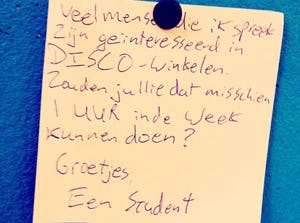 Veel mensen die ik spreek
zijn geïnteresseerd in
DISCO-winkelen.
Zouden jullie dat misschien
1 UUR in de week
kunnen doen?
Groetjes,
Een Student